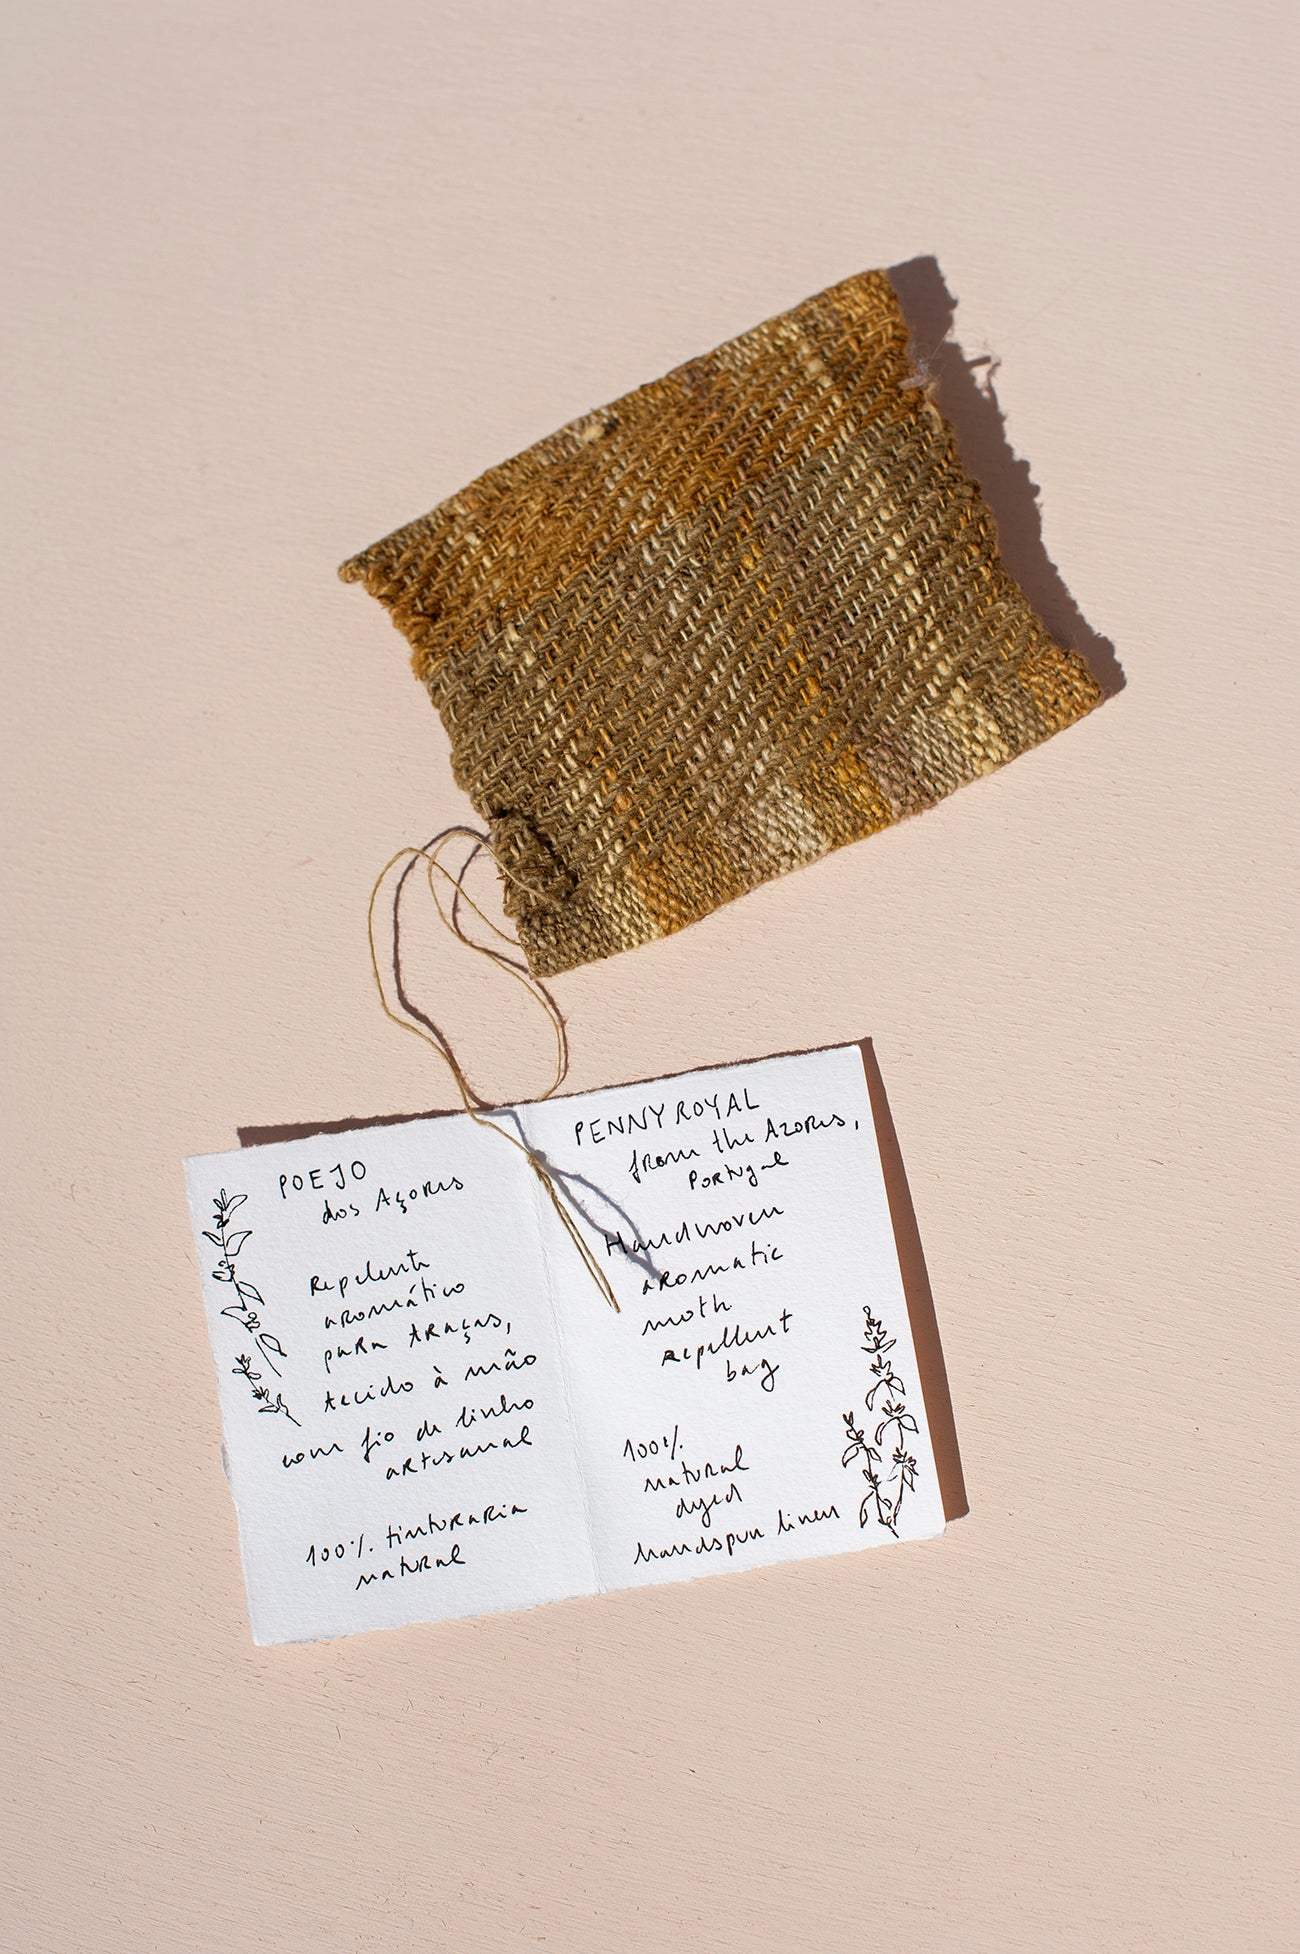 POEJO
dos Açores
Repelente
aromático
para traças,
tecido à mão
com fio de linho
artesanal
100% tinturaria
natural
PENNYROYAL
from the Azores,
Portugal
Handwoven
aromatic
moth
repellent
bag
100%
natural
dyed
handspun linen